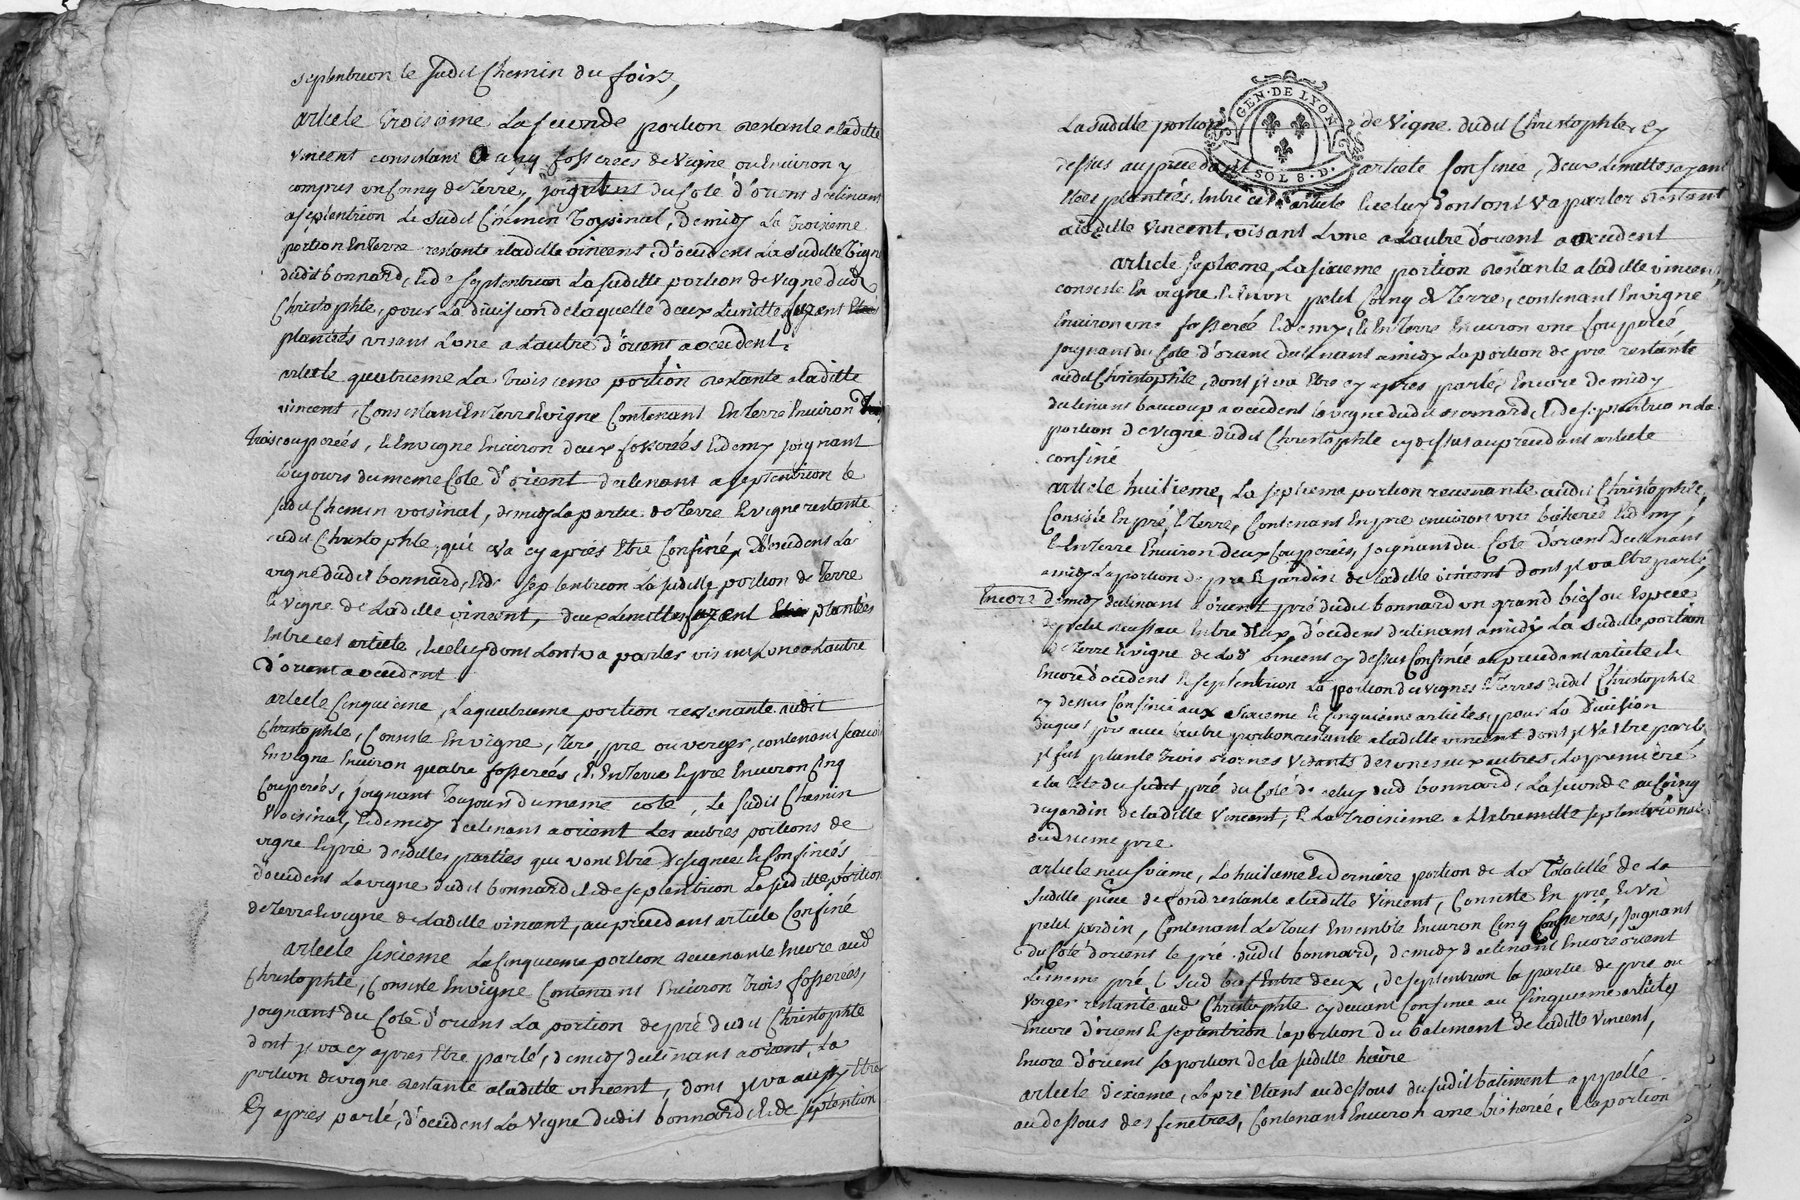 septentrion le sudit Chemin du foin,
article troisieme La seconde portion restante a laditte
vincent consistant fosserees de Vigne ou Environ y
compris un Coing de Terre, joignant du Coté d'orient declinant
a septentrion Le sudit Chemin Voysinal, de midy La troisieme
portion En Terre restante a ladille vincent, d'occident La suditte vigne
dudit bonnard, & de septentrion La suditte portion de Vigne dudt
Christophle, pour La division de laquelle deux Limittes furent
plantées visant L'une a L'autre d'orient a occident.
article quatrieme La troisieme portion restante a laditte
vincent, Consistant En Terre & vigne Contenant En Terre Environ
trois couperées, & En vigne Environ deux fosserées & demy joignant
toujours du meme Cote d'orient declinant a septentrion le
sudit Chemin voisinal, de midy La partie de Terre & vigne restante
audit Christophle, qui va cy apres Etre Confiné, d'occident La
vigne dudit bonnard, & de septentrion La suditte portion de Terre
& Vigne de Laditte vincent, deux Limittes furent plantées
Entre cet article, & celuy dont L'on va parler visant L'une a L'autre
d'orient a occident
article Cinquieme, La quatrieme portion revenante audit
Christophle, Consiste En vigne, Terre, pre ou verger, contenant scavoir
En vigne Environ quatre fosserées, & En Terre & pre Environ Cinq
Couperées, joignant Toujours du meme coté, Le sudit Chemin
Voisinal, & de midy declinant a orient Les autres portions de
vigne & pre desdittes parties qui vont Etre Designée & Confinées
d'occident La vigne dudit bonnard & de septentrion La suditte portion
de Terre & vigne de Laditte vincent, au precedant article Confiné
article sixieme La Cinquieme portion revenante Encore aud
Christophle, Consiste En vigne Contenant Environ Trois fosserées,
joignant du Coté d'orient La portion de pré dudit Christophle
dont jl va cy apres Etre parlé, de midy declinant a orient, La
portion de vigne restante a laditte vincent, dont jl va aussy Etre
Cy apres parlé, d'occident La Vigne dudit bonnard & de septention
GEN · DE LYON
SOLS · D ·
La suditte portion de Vigne dudit Christophle, cy
dessus au precedant article Confinée, Deux Limittes ayant
Etées plantées, Entre cet article & celuy dont on va parler restant
a laditte Vincent, visant L'une a L'autre d'orient a occident
article septieme, La sixieme portion restante a laditte vincent
consiste En vigne & En un petit Coing de Terre, contenant En vigne
Environ une fosserée & demy, & En Terre Environ une Couperée,
joignant du Coté d'orient declinant a midy La portion de pre restante
audit Christophle, dont jl va Etre cy apres parlé, Encore de midy
declinant beaucoup a occident la vigne dudit bonnard, & de septentrion La
portion de vigne dudit Christophle cy dessus au precedant article
confiné
article huitieme, La septieme portion revenante audit Christophle,
Consiste En pré, & Terre, Contenant En pre environ une bicherée & demy,
& En Terre Environ deux Couperées, joignant du Coté d'orient declinant
a midy La portion de pre & jardin de laditte vincent dont jl va Etre parlé,
Encore de midy declinant a orient pré dudit bonnard un grand bief ou Espece
de petit ruisseau Entre deux, d'occident declinant a midy La suditte portion
de Terre & vigne de Lad vincent cy dessus Confinée au precedent article &
Encore d'occident & septentrion La portion des vignes & Terres dudit Christophle
cy dessus Confinée aux sixieme & cinquieme articles, pour La Division
duquel pre avec l'autre portion restante a laditte vincent dont jl va Etre parlé
jl fut planté Trois bornes visants des unes aux autres, La premiere
a la Tete du sudit pré du Coté de celuy dud bonnard, La seconde au Coing
du jardin de laditte Vincent, & La Troisieme a L'extremitté septentrionale
dud meme pre
article neufvieme, La huitieme & derniere portion de La Totalitté de La
suditte piece de fond restante a laditte Vincent, Consiste En pre & Un
petit jardin, Contenant Le Tout Ensemble Environ Cinq Couperées, joignant
du Coté d'orient le pré dudit bonnard, de midy declinant Encore orient
Le meme pré, & Sud bief Entre deux, de septentrion la partie de pre ou
Verger restante aud Christophle cy devant Confinée au Cinquieme article,
Encore d'orient & septentrion la portion du batiment de laditte Vincent,
Encore d'orient la portion de la suditte
article dixieme, Le pré Etant au dessous du sudit batiment appellé
au dessous des fenetres, Contenant Environ une bicherée, & la portion